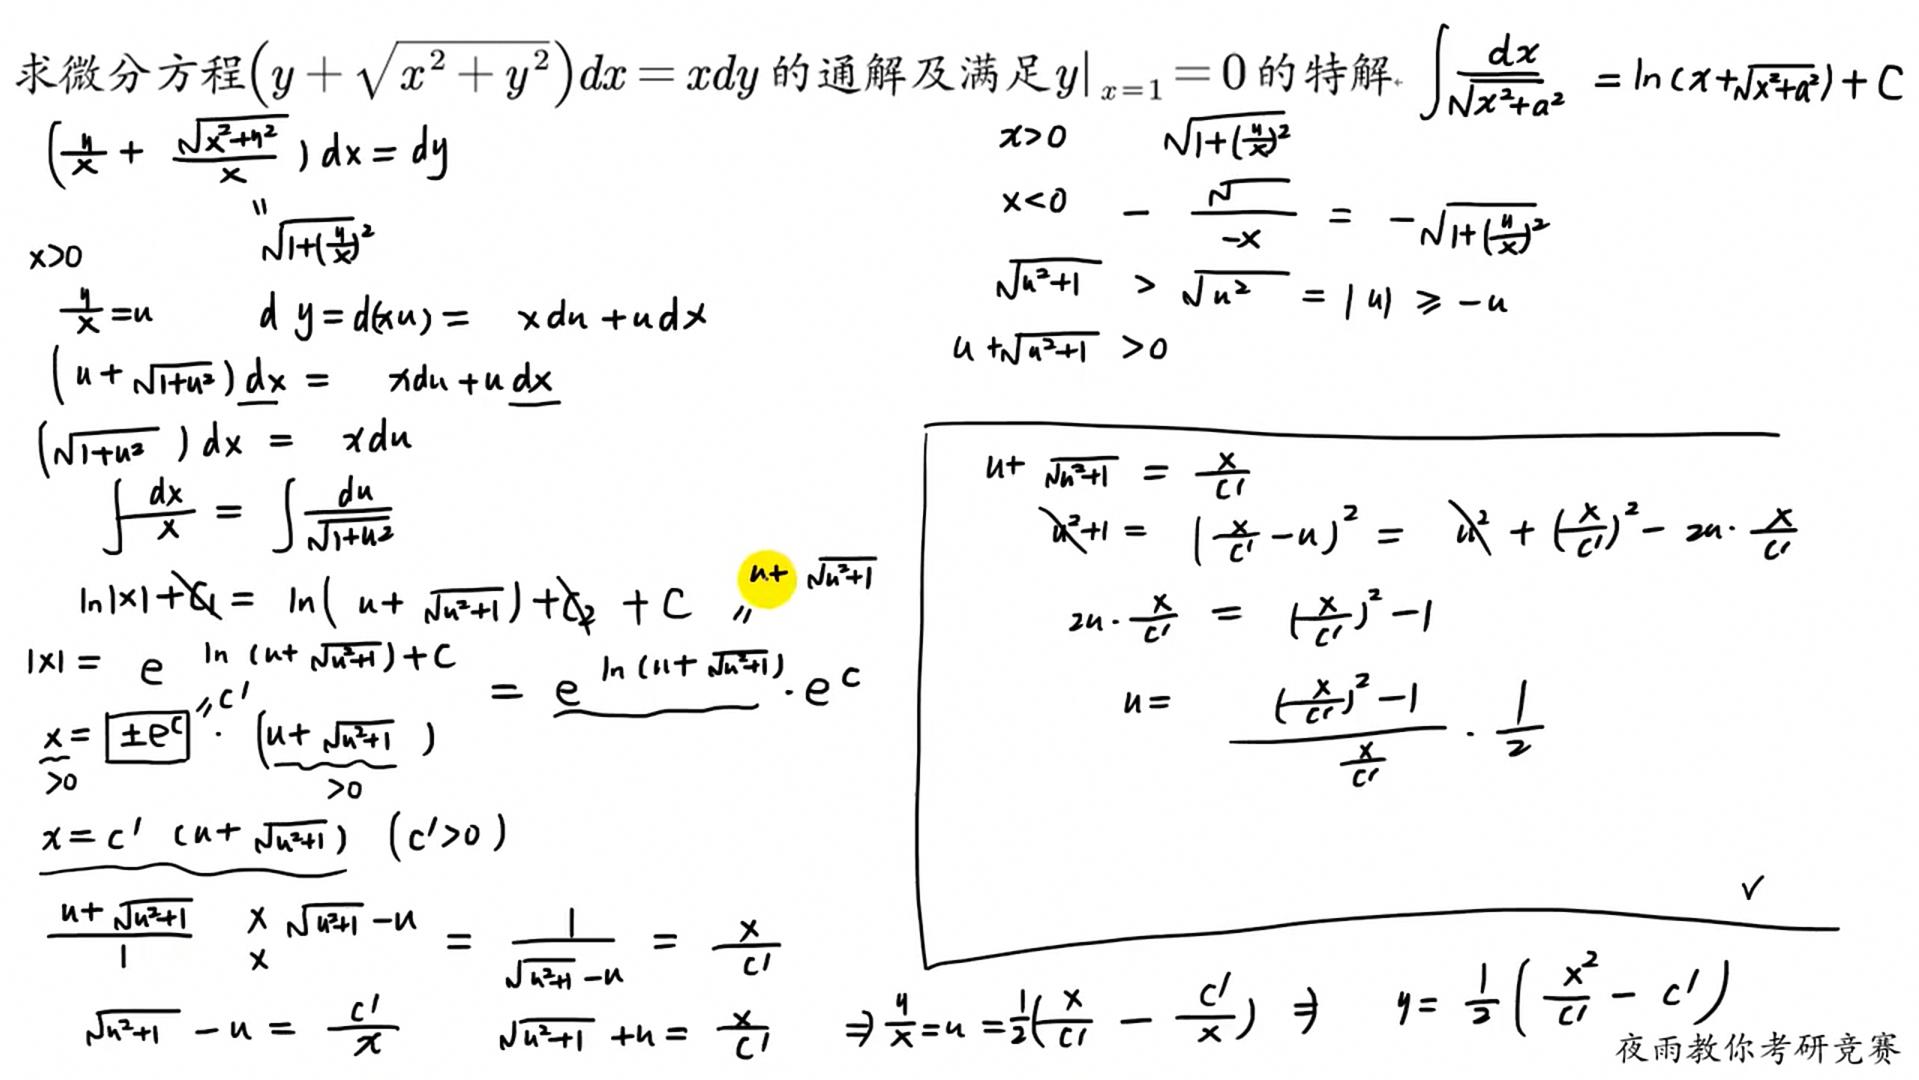 求微分方程(y + √(x² + y²))dx = xdy 的通解及满足 y|ₓ₌₁ = 0 的特解
∫ dx/√(x²+a²) = ln(x+√(x²+a²)) + C
(y/x + √(x²+y²)/x) dx = dy
"
√(1+(y/x)²)
x>0
y/x = u  dy = d(xu) = xdu + udx
(u + √(1+u²)) dx = xdu + udx
(√(1+u²)) dx = xdu
∫ dx/x = ∫ du/√(1+u²)
ln|x| + C₁ = ln(u + √(u²+1)) + C₂ + C
" u+ √(u²+1)
|x| = e^(ln(u+√(u²+1))+C) = e^(ln(u+√(u²+1))) · e^C
x = ±e^C · (u+√(u²+1))
" C'
>0 >0
x = C' (u+√(u²+1)) (C'>0)
(u+√(u²+1))/1 × (√(u²+1) -u)/× = 1/(√(u²+1) -u) = x/C'
√(u²+1) - u = C'/x  √(u²+1) + u = x/C' ⇒ y/x = u = 1/2(x/C' - C'/x) ⇒ y = 1/2(x²/C' - C')
x>0 √(1+(y/x)²)
x<0 - √/-x = -√(1+(y/x)²)
√(u²+1) > √(u²) = |u| ≥ -u
u+√(u²+1) >0
u+ √(u²+1) = x/C'
u²+1 = (x/C' - u)² = u² + (x/C')² - 2u·x/C'
2u·x/C' = (x/C')² - 1
u = ((x/C')² - 1)/(x/C') · 1/2
✓
夜雨教你考研竞赛